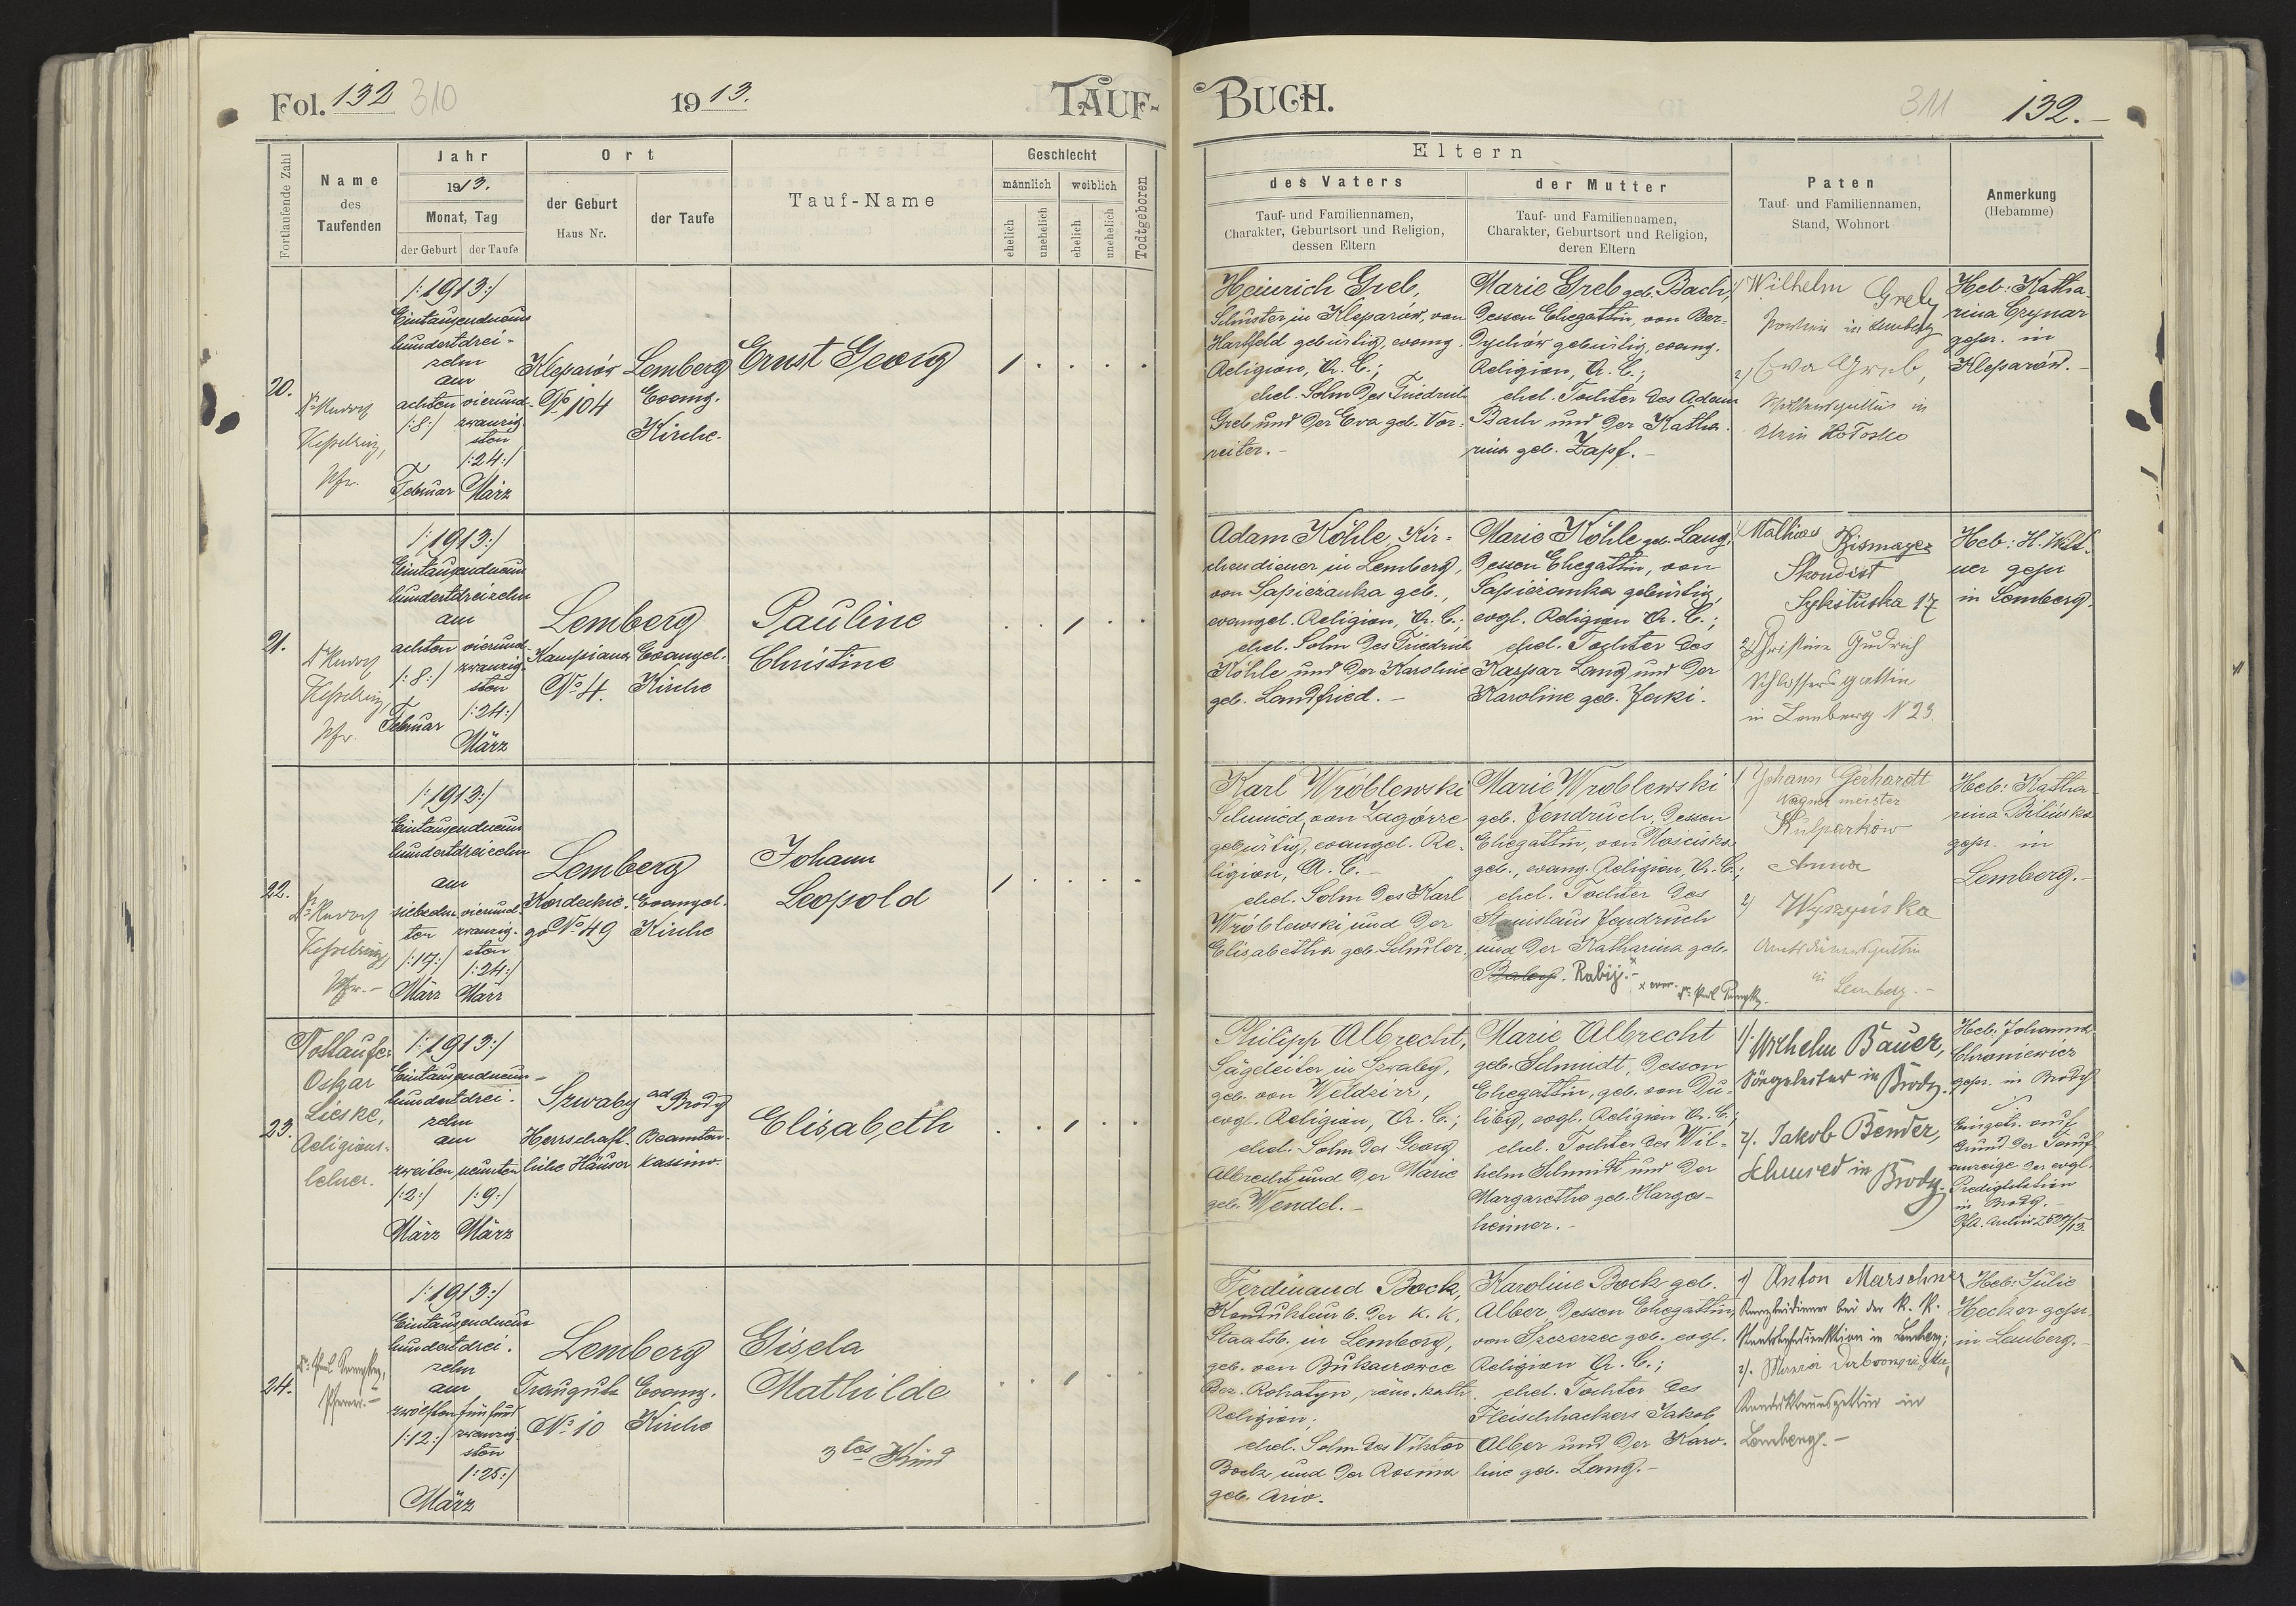 Fol. 132 310
1913.
TAUF-
Fortlaufende Zahl
Name
des
Taufenden
Jahr
1913.
Monat, Tag
der Geburt
der Taufe
Ort
der Geburt
Haus Nr.
der Taufe
Tauf-Name
Geschlecht
männlich
weiblich
ehelich
unehelich
ehelich
unehelich
Todtgeboren
20.
Kesselring,
Pfr.
/:1913:/
Eintausendneun
hundertdrei-
zehn
am
achten
/:8:/
Februar
vierund-
zwanzig-
sten
/:24:/
März
Kleparów
No 104
Lemberg
Evang.
Kirche.
Ernst Georg
21.
Kesselring,
Pfr.
/:1913:/
Eintausendneun
hundertdreizehn
am
achten
/:8:/
Februar
vierund-
zwanzig-
sten
/:24:/
März
Lemberg
Kampiana
No 4.
Evangel.
Kirche
Pauline
Christine
22.
Kesselring,
Pfr.-
/:1913:/
Eintausendneun
hundertdreizehn
am
siebzehn-
ten
/:17:/
März
vierund-
zwanzig-
sten
/:24:/
März
Lemberg
Kordeckie-
go No 49
Evangel.
Kirche
Johann
Leopold
23.
Nottaufe:
Oskar
Lieske,
Religions-
lehrer.
/:1913:/
Eintausendneun-
hundertdrei-
zehn
am
zweiten
/:2:/
März
neunten
/:9:/
März
Szwaby ad Brody
Herrschaft-
liche Häuser
Beamten-
kassino.
Elisabeth
24.
Pfarrer.-
/:1913:/
Eintausendneun
hundertdrei-
zehn
am
zwölften
/:12:/
fünfund
zwanzig-
sten
/:25:/
März
Lemberg
Traugutta
No 10
Evang.
Kirche
Gisela
Mathilde
3tes Kind
BUCH.
311
132.-
Eltern
des Vaters
Tauf- und Familiennamen,
Charakter, Geburtsort und Religion,
dessen Eltern
der Mutter
Tauf- und Familiennamen,
Charakter, Geburtsort und Religion,
deren Eltern
Paten
Tauf- und Familiennamen,
Stand, Wohnort
Anmerkung
(Hebamme)
Heinrich Greb,
Schuster in Kleparów, von
Hartfeld gebürtig, evang.
Religion, A. C.;
ehel. Sohn des Friedrich
Greb und der Eva geb. Vor-
reiter.-
Marie Greb geb. Bach,
dessen Ehegattin, von Ber-
dychów gebürtig, evang.
Religion, A. C.;
ehel. Tochter des Adam
Bach und der Katha-
rina geb. Zapf.-
1) Wilhelm Greb
in Lemberg
2) Eva Greb,
in
Klein Hołosko
Heb: Katha-
rina Crynar
gepr. in
Kleparów.-
Adam Köhle, Kir-
chendiener in Lemberg,
von Sapieżanka geb.,
evangel. Religion, A. C.;
ehel. Sohn des Friedrich
Köhle und der Karoline
geb. Landfried.-
Marie Köhle geb. Lang,
dessen Ehegattin, von
Sapieżanka gebürtig,
evgl. Religion A. C.;
ehel. Tochter des
Kaspar Lang und der
Karoline geb. Jaki.
1) Mathias Bismayer
Sykstuska 17
2) Christine Gudrich
Schlossersgattin
in Lemberg N 23.
Heb: H.
gepr
in Lemberg.
Karl Wróblewski
Schmied, von Zagórze
gebürtig, evangel. Re-
ligion, A. C.-
ehel. Sohn des Karl
Wróblewski und der
Elisabetha geb. Schuler.
Marie Wróblewski
geb. Jendruch, dessen
Ehegattin, von Mościska
geb., evang. Religion, A. C.;
ehel. Tochter des
Stanislaus Jendruch
und der Katharina geb.
Rabij.-
1) Johann Gerhardt
Wagnermeister
Kulparkow
2) Anna
Wyszyńska
Amtsdienersgattin
in Lemberg.-
Heb: Katha-
rina Bilińska
gepr. in
Lemberg.-
Philipp Albrecht,
Sägeleiter in Szwaby,
geb. von Weldzirz,
evgl. Religion, A. C.;
ehel. Sohn des Georg
Albrecht und der Marie
geb. Wendel.-
Marie Albrecht
geb. Schmidt, dessen
Ehegattin, geb. von Du-
liby, evgl. Religion A. C.;
ehel. Tochter des Wil-
helm Schmidt und der
Margaretha geb. Harges-
heimer.-
1). Wilhelm Bauer,
Sägeleiter in Brody.
2). Jakob Bender,
Schmied in Brody.
Heb: Johanna
Chroniewicz
gepr. in Brody
Eingetr. auf
Grund der Tauf-
anzeige der evgl.
Predigtstation
in Brody.-
Ferdinand Bock,
Kondukteur b. der k. k.
Staatsb. in Lemberg,
geb. von Bukaczowce
Bez. Rohatyn, röm. kath.
Religion;
ehel. Sohn des Viktor
Bock und der Rosina
geb. Ario.
Karoline Bock geb.
Alber, dessen Ehegattin,
von Szczerzec geb. evgl.
Religion A. C.;
ehel. Tochter des
Fleischhackers Jakob
Alber und der Karo-
line geb. Lang.-
1) Anton Marschner
Kanzleidiener bei der k. k.
in Lemberg;
2). Maria
Kondukteursgattin in
Lemberg.-
Heb: Julie
Hecker gepr.
in Lemberg.-